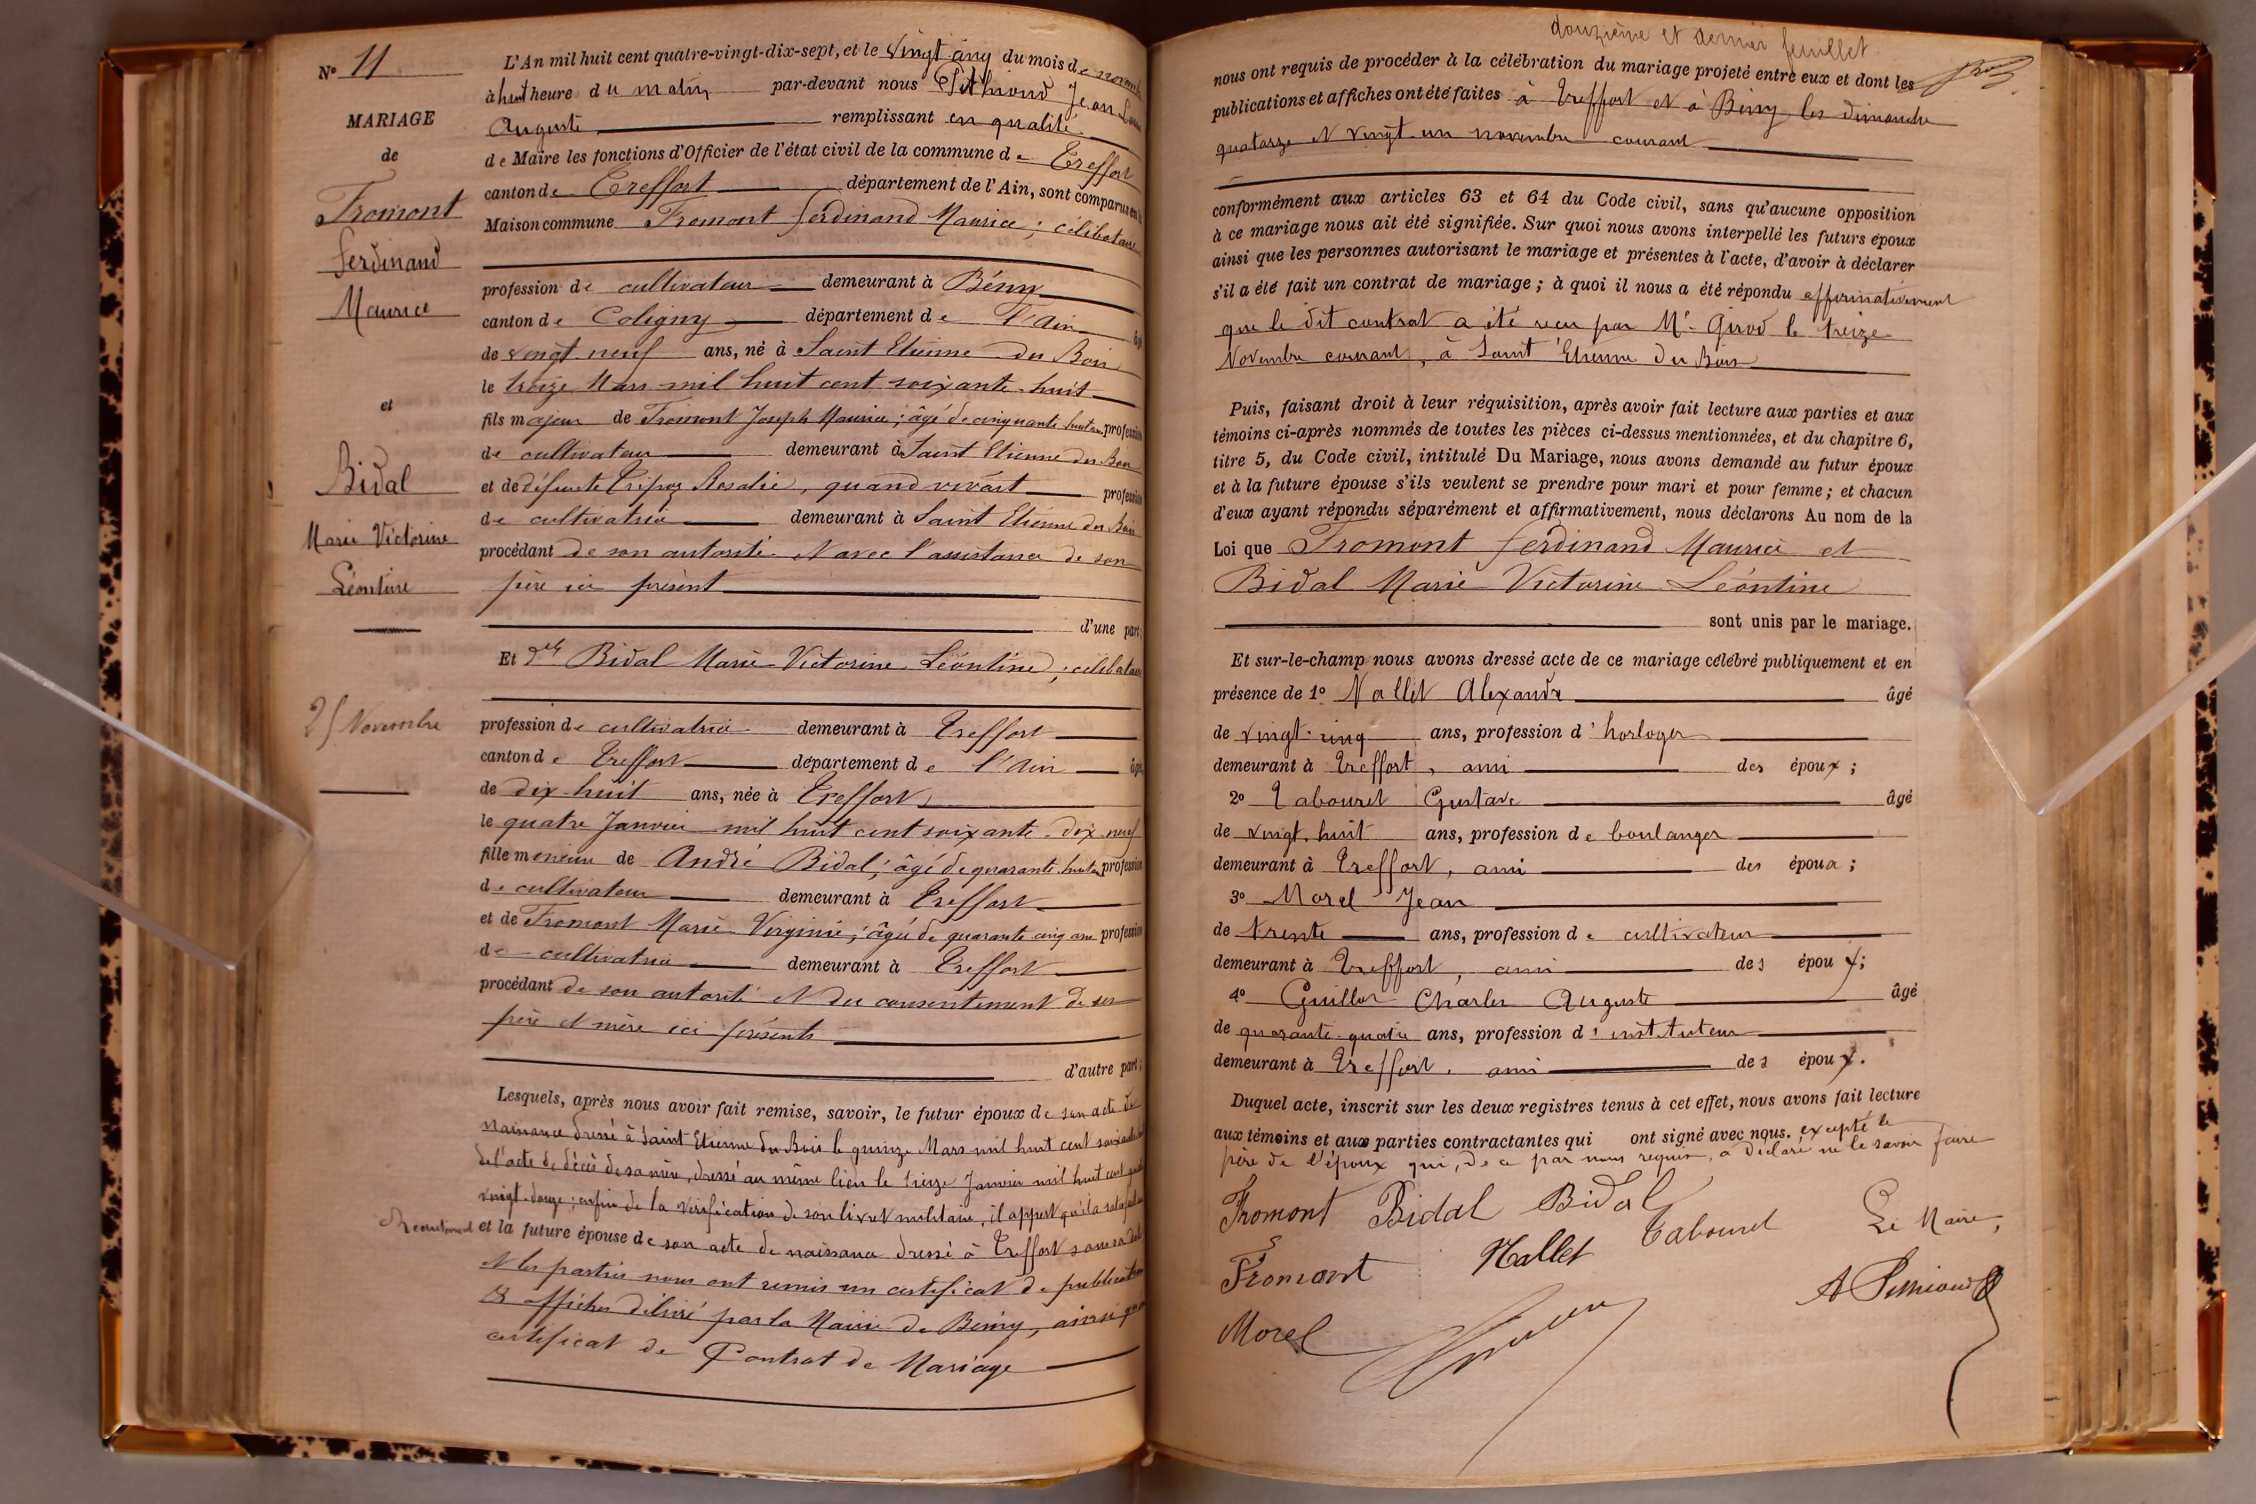 N° 11
MARIAGE
de
Fromont
Ferdinand
Maurice
et
Bidal
Marie Victorine
Léontine
25 Novembre
L'An mil huit cent quatre-vingt-dix-sept, et le vingt cinq du mois de novembre
à huit heure du matin par-devant nous Jean Louis
Auguste remplissant en qualité
de Maire les fonctions d'Officier de l'état civil de la commune de Treffort
canton de Treffort département de l'Ain, sont comparus en la
Maison commune Fromont Ferdinand Maurice ; célibataire
profession de cultivateur demeurant à Bény
canton de Coligny département de l'Ain âgé
de vingt neuf ans, né à Saint Etienne du Bois
le treize Mars mil huit cent soixante-huit
fils majeur de Fromont Joseph Maurice ; âgé de cinquante huit ans profession
de cultivateur demeurant à Saint Etienne du Bois
et de défunte Tripoz Rosalie, quand vivait profession
de cultivatrice demeurant à Saint Etienne du Bois
procédant de son autorité et avec l'assistance de son
père ici présent
d'une part ;
Et Dlle Bidal Marie Victorine Léontine ; célibataire
profession de cultivatrice demeurant à Treffort
canton de Treffort département de l'Ain âgée
de dix huit ans, née à Treffort
le quatre Janvier mil huit cent soixante-dix-neuf
fille mineure de André Bidal ; âgé de quarante huit ans profession
de cultivateur demeurant à Treffort
et de Fromont Marie Virginie ; âgée de quarante cinq ans profession
de cultivatrice demeurant à Treffort
procédant de son autorité et du consentement de ses
père et mère ici présents
d'autre part ;
Lesquels, après nous avoir fait remise, savoir, le futur époux de son acte de
naissance dressé à Saint Etienne du Bois le quinze Mars mil huit cent soixante huit
de l'acte de décès de sa mère, dressé au même lieu le treize Janvier mil huit cent quatre
vingt-douze ; enfin de la vérification de son livret militaire, il appert qu'il a satisfait au
Recrutement et la future épouse de son acte de naissance dressé à Treffort sous sa date
et les parties nous ont remis un certificat de publications
et affiches délivré par la Mairie de Bény, ainsi qu'un
certificat de Contrat de Mariage
douzième et dernier feuillet
nous ont requis de procéder à la célébration du mariage projeté entre eux et dont les
publications et affiches ont été faites à Treffort et à Bény les dimanche
quatorze et vingt-un novembre courant
conformément aux articles 63 et 64 du Code civil, sans qu'aucune opposition
à ce mariage nous ait été signifiée. Sur quoi nous avons interpellé les futurs époux
ainsi que les personnes autorisant le mariage et présentes à l'acte, d'avoir à déclarer
s'il a été fait un contrat de mariage ; à quoi il nous a été répondu affirmativement
que le dit contrat a été reçu par Me Girod le treize
Novembre courant, à Saint Etienne du Bois
Puis, faisant droit à leur réquisition, après avoir fait lecture aux parties et aux
témoins ci-après nommés de toutes les pièces ci-dessus mentionnées, et du chapitre 6,
titre 5, du Code civil, intitulé Du Mariage, nous avons demandé au futur époux
et à la future épouse s'ils veulent se prendre pour mari et pour femme ; et chacun
d'eux ayant répondu séparément et affirmativement, nous déclarons Au nom de la
Loi que Fromont Ferdinand Maurice et
Bidal Marie Victorine Léontine
sont unis par le mariage.
Et sur-le-champ nous avons dressé acte de ce mariage célébré publiquement et en
présence de 1° Nallet Alexandre âgé
de vingt-cinq ans, profession d'horloger
demeurant à Treffort, ami des époux ;
2° Tabouret Gustave âgé
de vingt-huit ans, profession de boulanger
demeurant à Treffort, ami des époux ;
3° Morel Jean
de trente ans, profession de cultivateur
demeurant à Treffort, ami des époux ;
4° Guillot Charles Auguste âgé
de quarante-quatre ans, profession d'instituteur
demeurant à Treffort, ami des époux.
Duquel acte, inscrit sur les deux registres tenus à cet effet, nous avons fait lecture
aux témoins et aux parties contractantes qui ont signé avec nous. excepté le
père de l'époux qui, de ce par nous requis, a déclaré ne le savoir faire
Fromont Bidal Bidal
Tabouret Le Maire,
Fromont Nallet
Morel